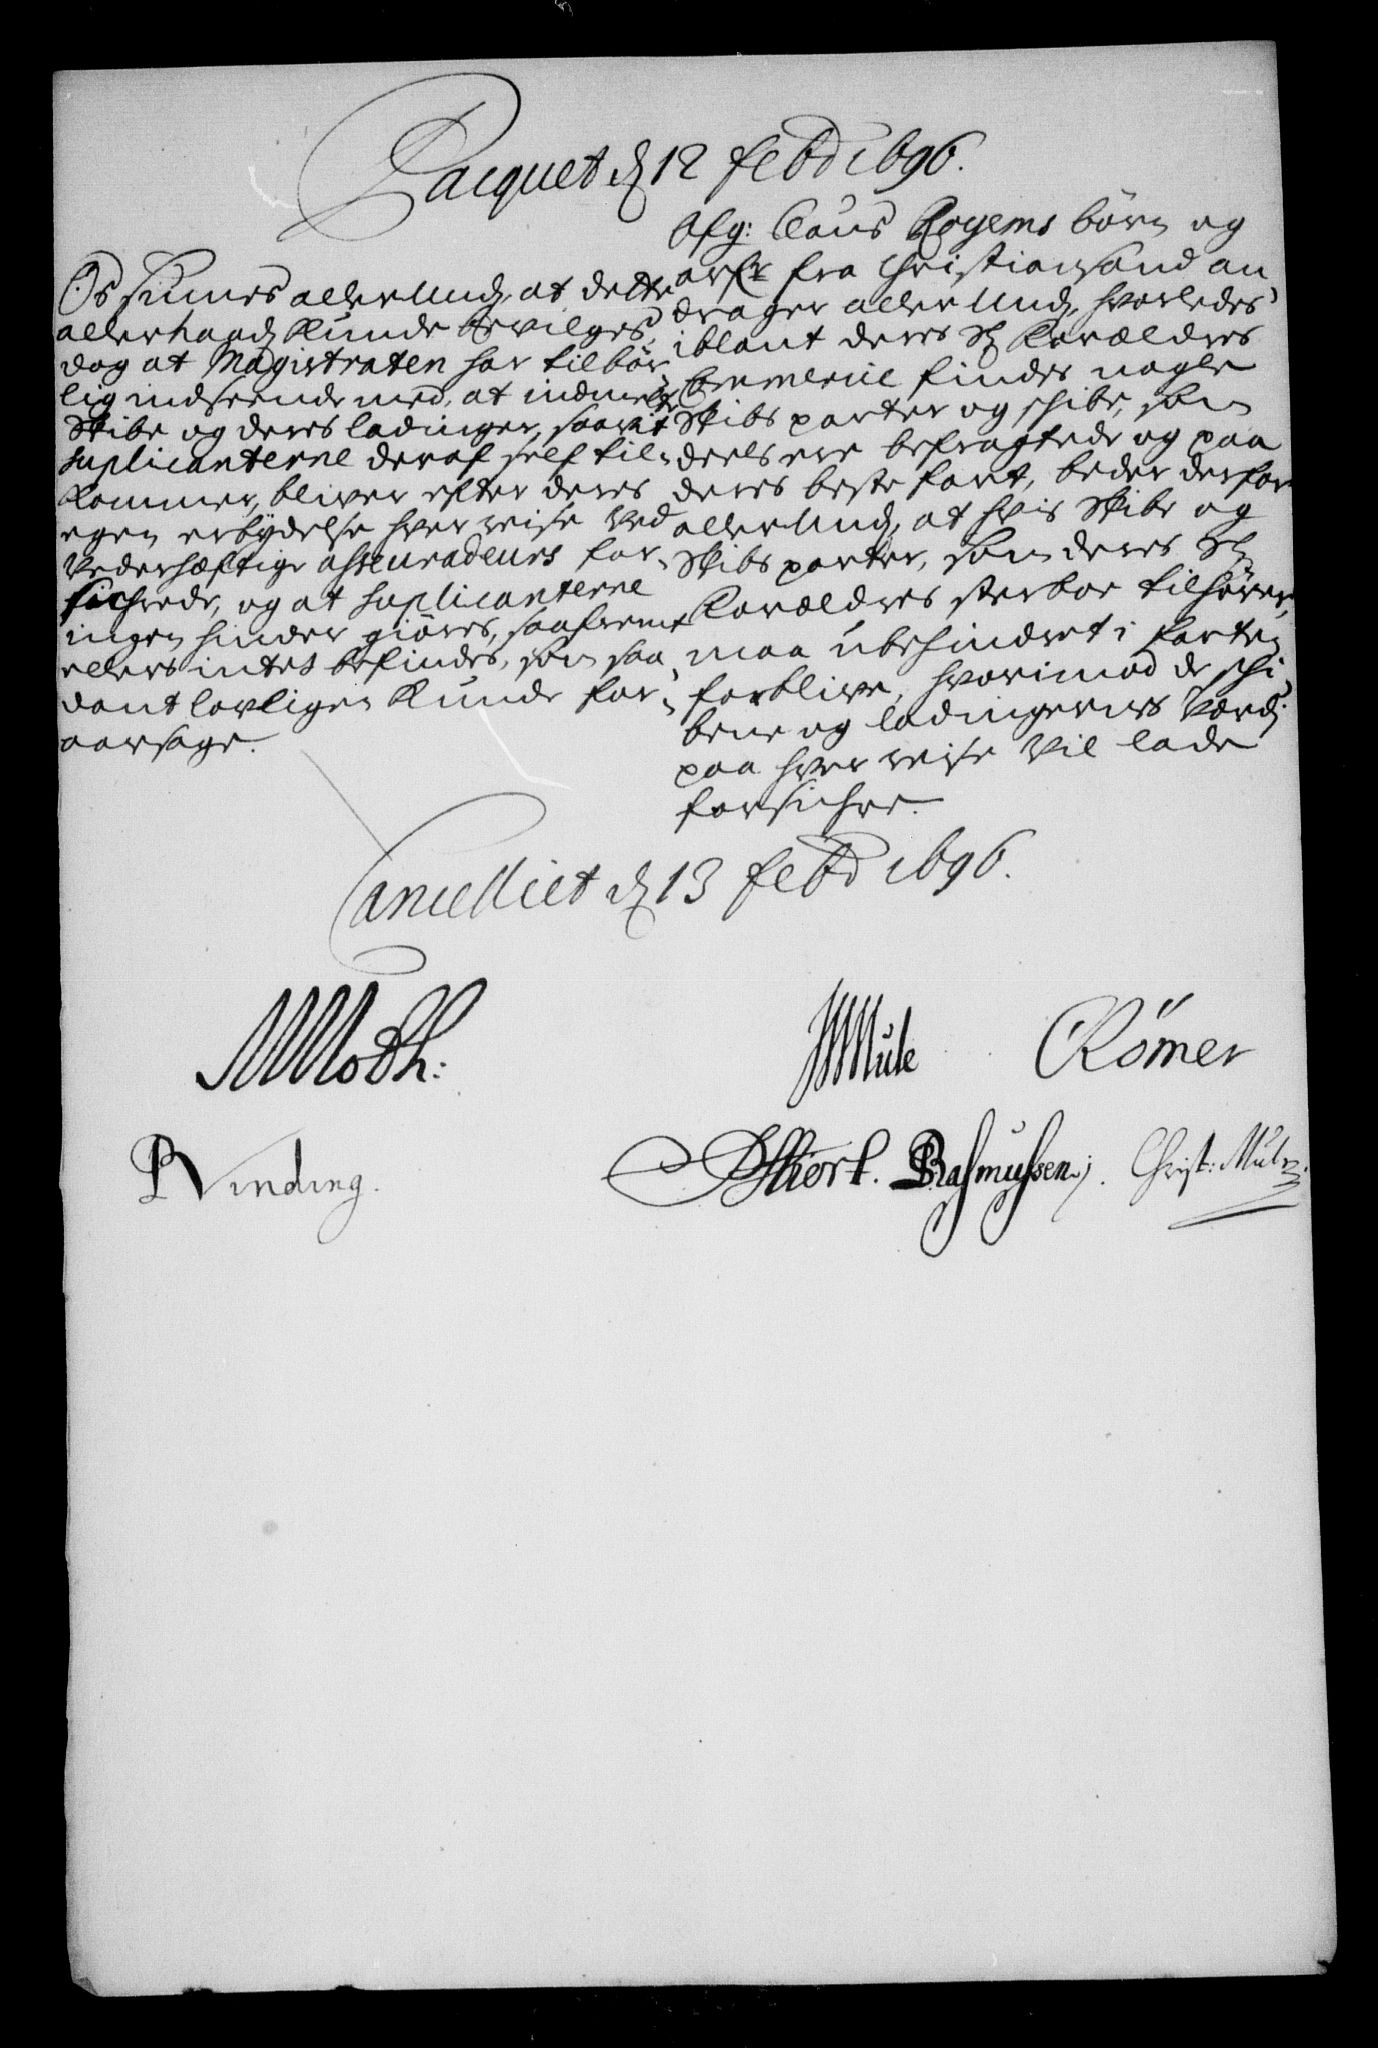 Pacquet dʒ 12 Febr 1696.
Afg: Claus Royems börn og
arfr fra Christiansand an
drager allerUndʒ, hvorledes
iblant deres Sl Forældres
formerne findes nogle
Skibs parter og schibe, som
deels ere befragtede og paa
deres beste fart, beder derfor
allerUndʒ, at hvis Skibe og
Skibs parter, som deres Sl
Forældres sterboe tilhører,
maa ubehindret i farten
forblive, hvorimod de schi
bene og ladingernes Værdi
paa hver reise Vil lade
forsichre.
Os siunes allerUndʒ, at dette
allernaadʒ Kunde bevilges,
dog at Magistraten har tilbör
lig indseende med, at indmelte
Skibe og deres ladinger, saavit
suplicanterne deraf self til
kommer, bliver efter deres
egen erbydelse hver reise Ved
Vederhæftige asseuradeurs for
sichrede, og at suplicanterne
ingen hinder giöres, saafremt
ellers intet befindes, som saa
dant lovligen Kunde for
aarsage.
Cancelliet dʒ 13 Febr 1696.
MMoth:
Mule
CRömer
PVinding.
Hiort.
BRasmussen.
Christ: Mule